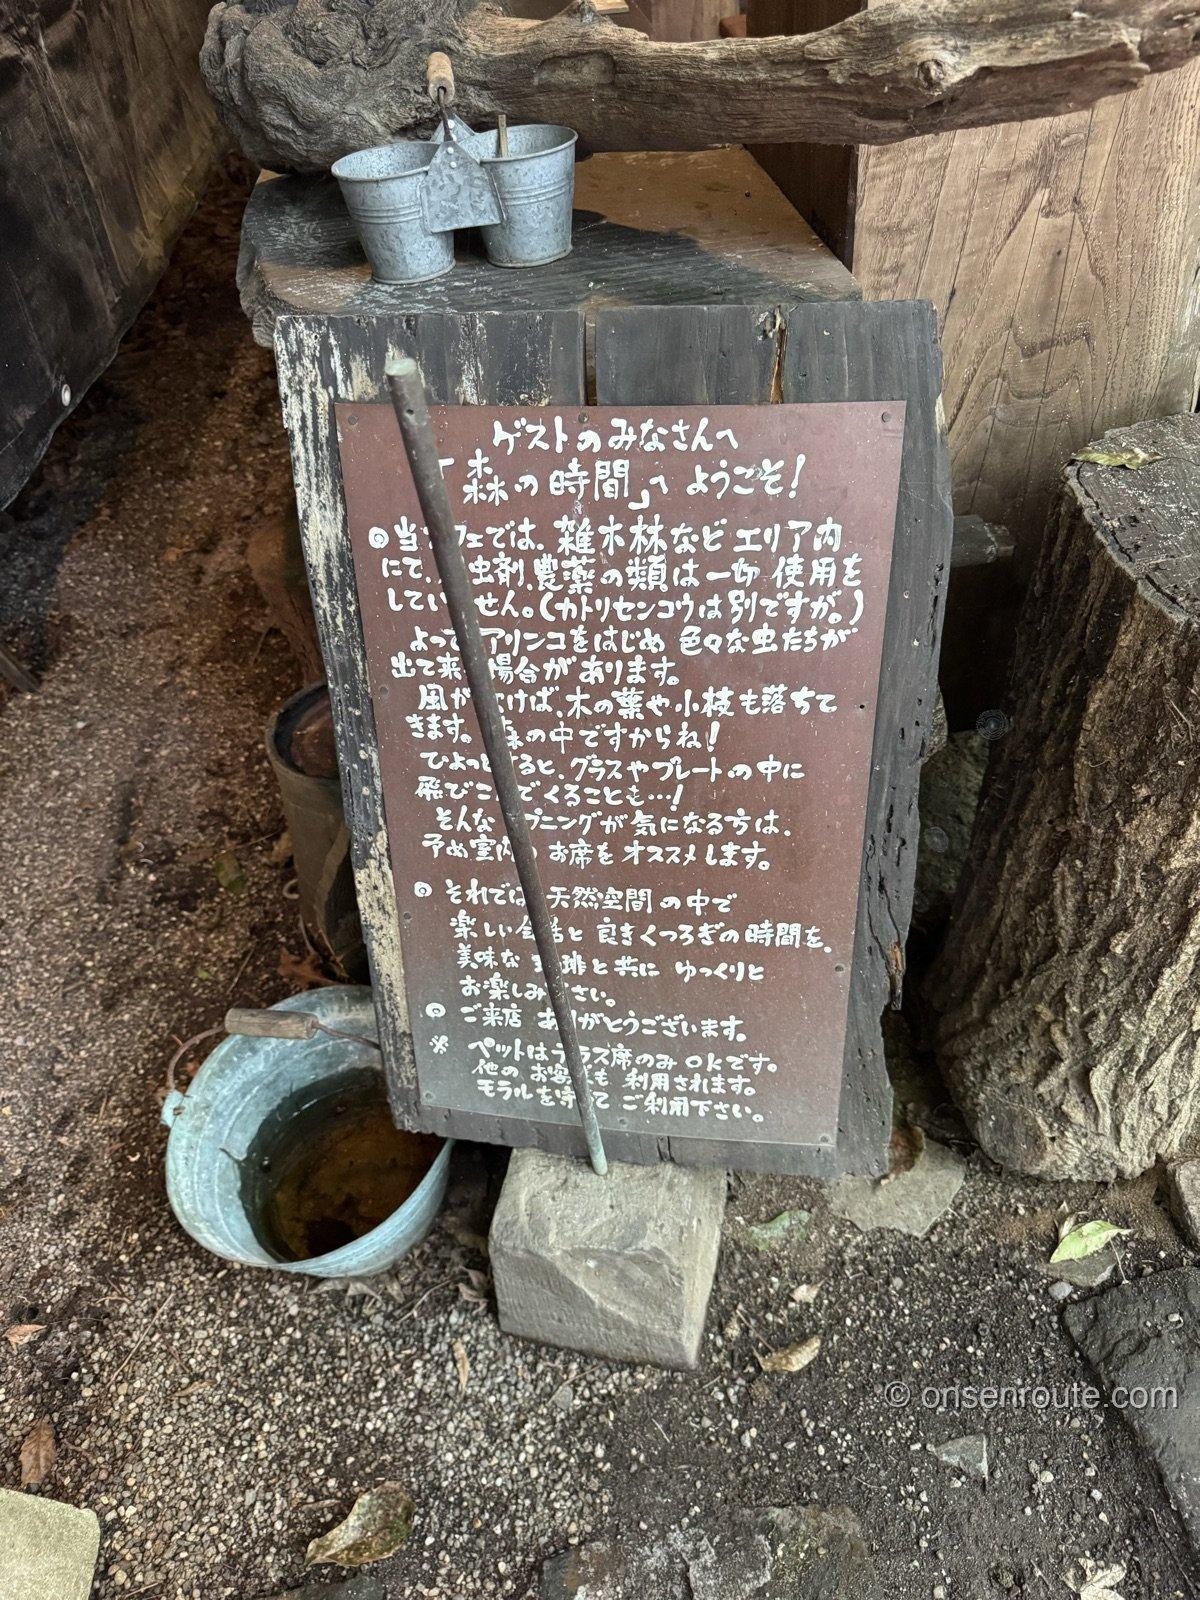 ゲストのみなさんへ
「森の時間」へ ようこそ!
◎当 フェでは、雑木林など エリア内
にて、 虫剤、農薬の類は一切 使用を
してい せん。(カトリセンコウは別ですが。)
よって アリンコをはじめ 色々な虫たちが
出て来 場合があります。
風が けば、木の葉や小枝も落ちて
きます。 の中ですからね!
ひょっと ると、グラスやプレートの中に
飛びこ でくることも…!
そんな プニングが気になる方は、
予め室内 お席をオススメします。
◎ それでは 天然空間の中で
楽しい会話と 良きくつろぎの時間を、
美味な 琲と共に ゆっくりと
お楽しみ さい。
◎ ご来店 ありがとうございます。
※ ペットはテラス席のみ OKです。
他の お客 も 利用されます。
モラルを守 て ご利用下さい。
© onsenroute.com